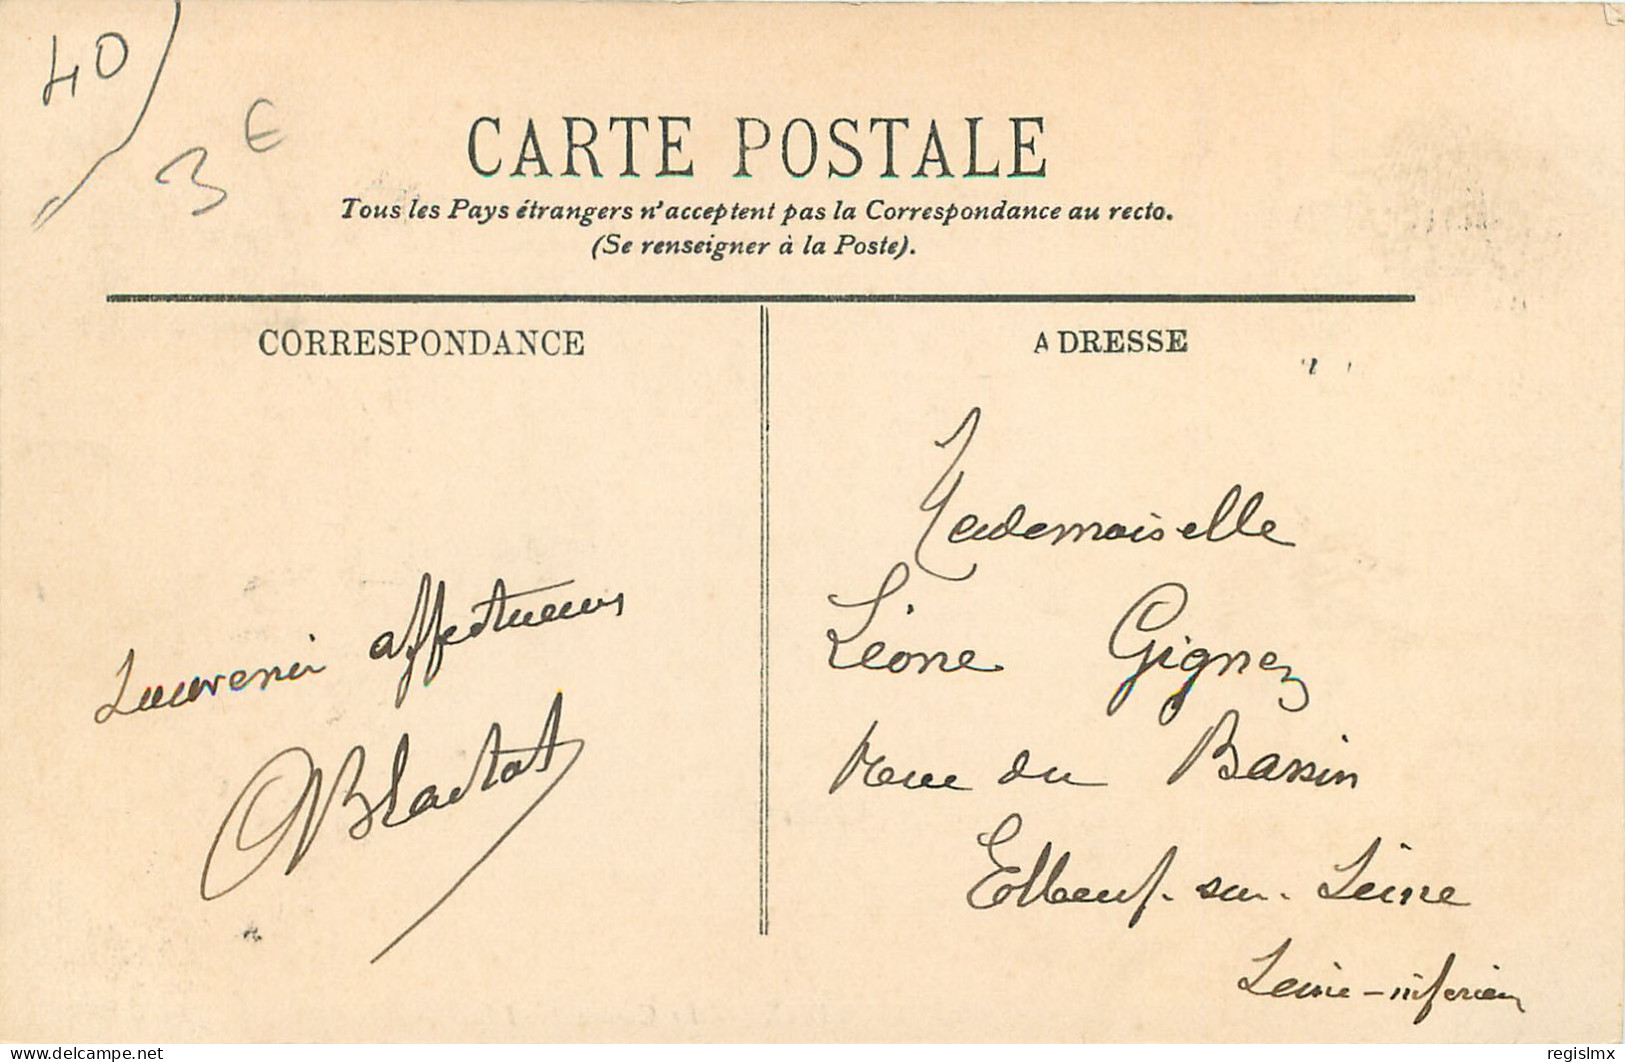 40
3€
CARTE POSTALE
Tous les Pays étrangers n'acceptent pas la Correspondance au recto.
(Se renseigner à la Poste).
CORRESPONDANCE
Souvenir affectueux
ADRESSE
Mademoiselle
Léone Gignez
Rue du Bassin
Elbeuf-sur-Seine
Seine-inférieu
delcampe.net
regislmx